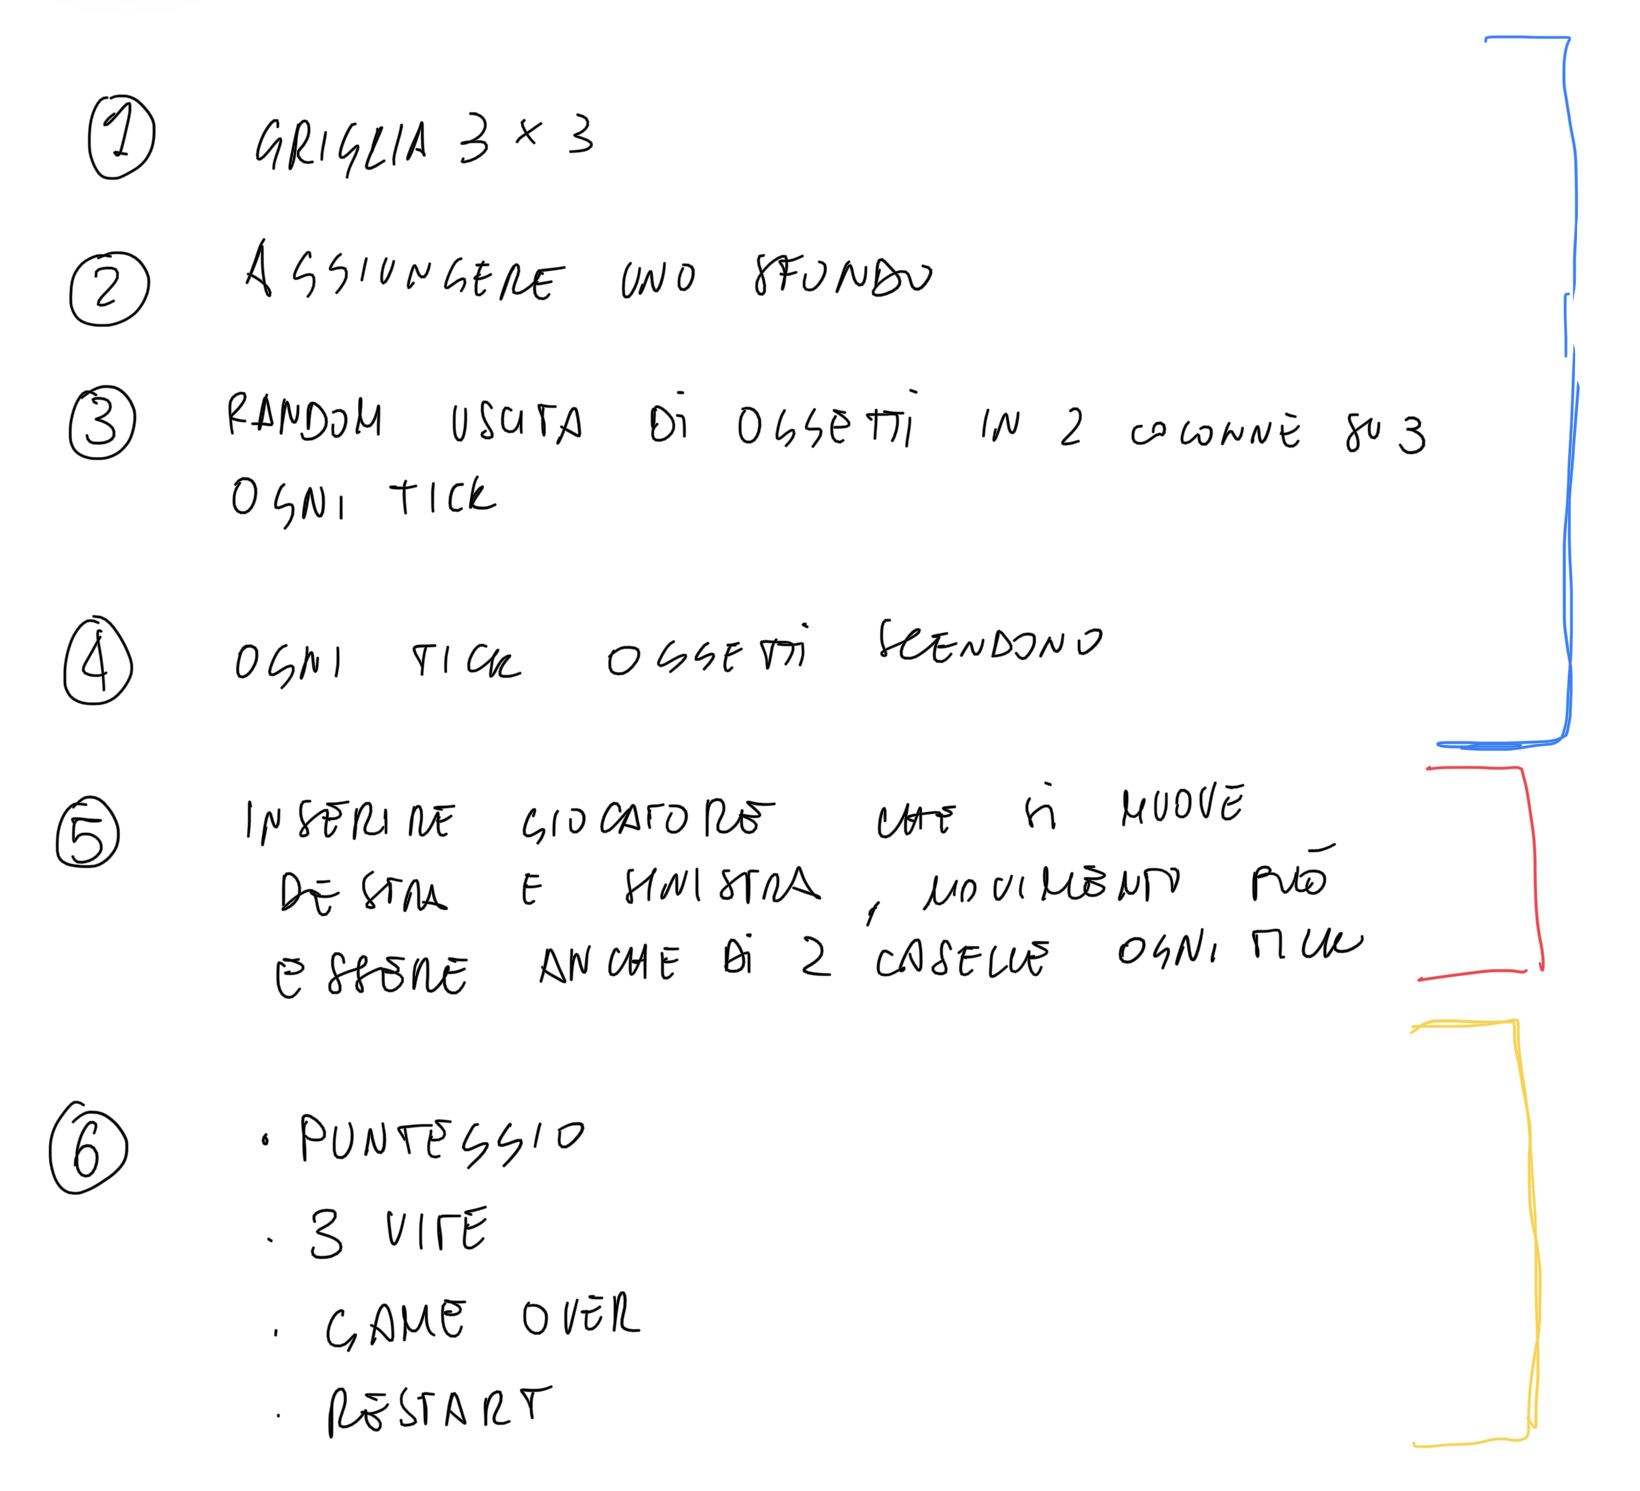 1 GRIGLIA 3 × 3
2 AGGIUNGERE UNO SFONDO
3 RANDOM USCITA Di OGGETTi IN 2 COLONNE SU 3
OGNI TICK
4 OGNI TICK OGGETTi SCENDONO
5 INSERIRE GIOCATORE CHE Si MUOVE
DESTRA E SINISTRA, MOVIMENTO PUÒ
ESSERE ANCHE Di 2 CASELLE OGNI TICK
6 · PUNTEGGIO
· 3 VITE
· GAME OVER
· RESTART